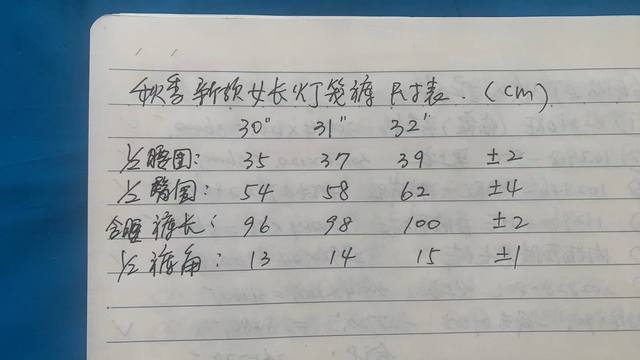 秋季新款女长灯笼裤尺寸表.(cm)
30" 31" 32"
1/2腰围: 35 37 39 ±2
1/2臀围: 54 58 62 ±4
含腰裤长: 96 98 100 ±2
1/2裤角: 13 14 15 ±1